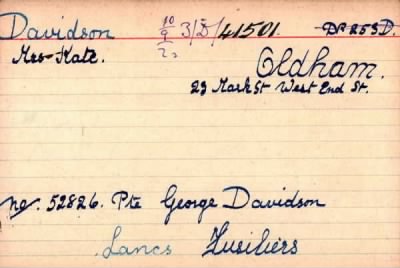 Davidson 10/9/20 3/D/41501. DP 253D.
Mrs Kate. Oldham.
29 Mark St West End St.
no. 52826. Pte George Davidson
Lancs Fusiliers